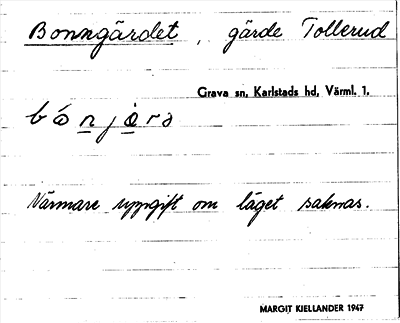 Bonngärdet, gärde Tollerud
Grava sn, Karlstads hd, Värml. l.
Närmare uppgift om läget saknas.
MARGIT KIELLANDER 1947